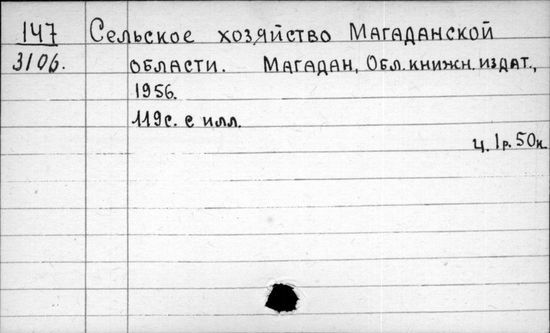 147 Сельское хозяйство Магаданской
3106. области. Магадан, Обл. книжн. издат.,
1956.
119с. с илл.
ц. 1р. 50к.